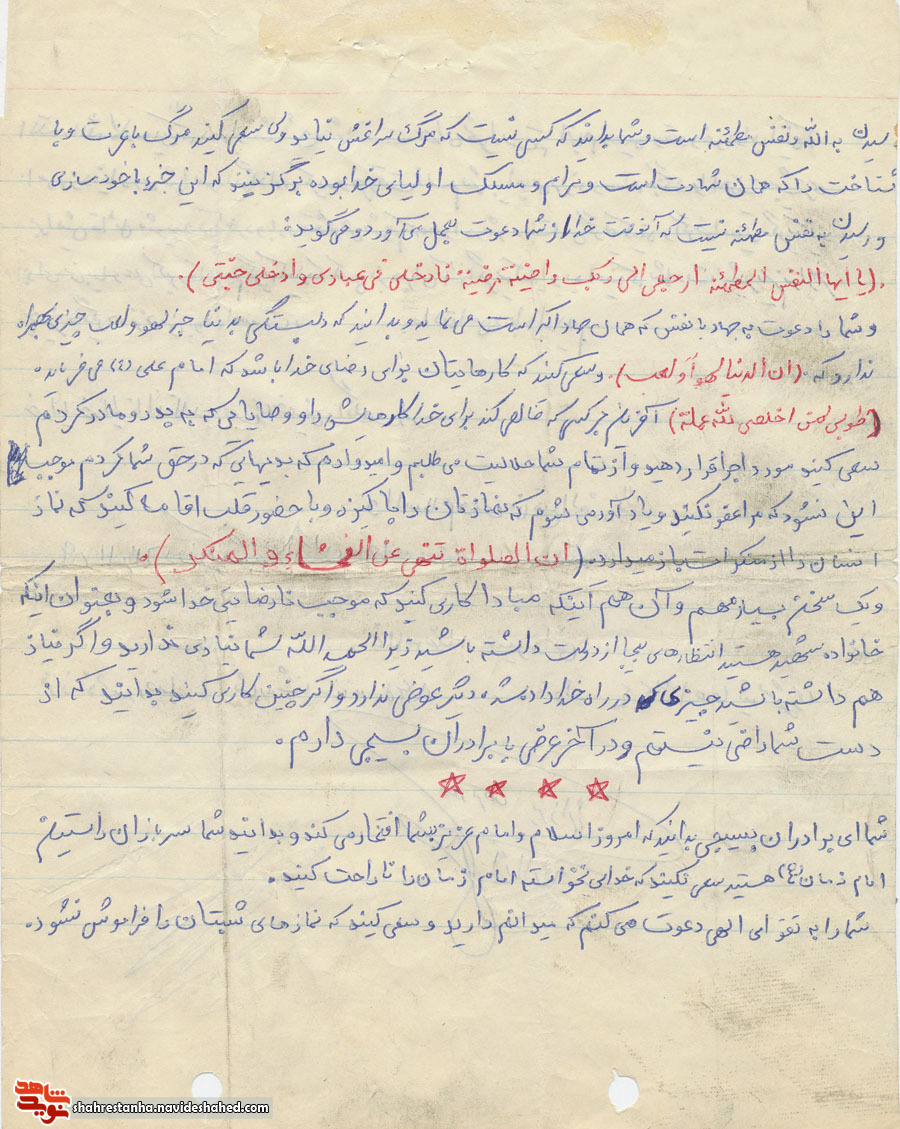 رسیدن به الله و نفس مطمئنه است و شما بدانید که کسی نیست که مرگ سراغش نیاید ولی سعی کنید مرگ با عزت و با
شناخت را که همان شهادت است و مرام و مسلک اولیای خدا بوده برگزینید که این جز با خودسازی
و رسیدن به نفس مطمئنه نیست که آنوقت خدا از شما دعوت بعمل می آورد و می گوید:
(یا ایها النفس المطمئنه ارجعی الی ربک راضیة مرضیة فادخلی فی عبادی وادخلی جنتی).
و شما را دعوت به جهاد با نفس که همان جهاد اکبر است می نمایم و بدانید که دلبستگی به دنیا جز لهو و لعب چیزی بهمراه
ندارد که (ان الدنیا لهواً و لعب). و سعی کنید که کارهایتان برای رضای خدا باشد که امام علی (ع) می فرماید.
(طوبی لمن اخلص لله عمله) آفرین بر کسی که خالص کند برای خدا کارهایش را و وصایایی که به پدر و مادر کردم
سعی کنید مورد اجرا قرار دهید و از تمام شما حلالیت می طلبم و امیدوارم که بدیهایی که در حق شما کردم موجب
این نشود که مرا عفو نکنید و یادآور می شوم که نمازتان را پاکیزه و با حضور قلب اقامه کنید که نماز
انسان را از منکرات باز میدارد. (ان الصلواة تنهی عن الفحشاء و المنکر).
و یک سخن بسیار مهم و آن هم اینکه مبادا کاری کنید که موجب نارضایتی خدا شود و بعنوان اینکه
خانواده شهید هستید انتظارهای بیجا از دولت داشته باشید زیرا الحمد الله شما نیازی ندارید و اگر نیاز
هم داشته باشید چیزی که در راه خدا داده شده دیگر عوض ندارد و اگر چنین کاری کنید بدانید که از
دست شما راضی نیستم و در آخر عرضی با برادران بسیجی دارم.
شما ای برادران بسیجی بدانید که امروز اسلام و امام عزیز به شما افتخار می کند و بدانید شما سربازان راستین
امام زمان (ع) هستید سعی نکنید که خدای نخواسته امام زمان را ناراحت کنید.
شما را به تقوای الهی دعوت می کنم که میدانم دارید و سعی کنید که نمازهای شبتان را فراموش نشود.
شاهد
نوید
shahrestanha.navideshahed.com